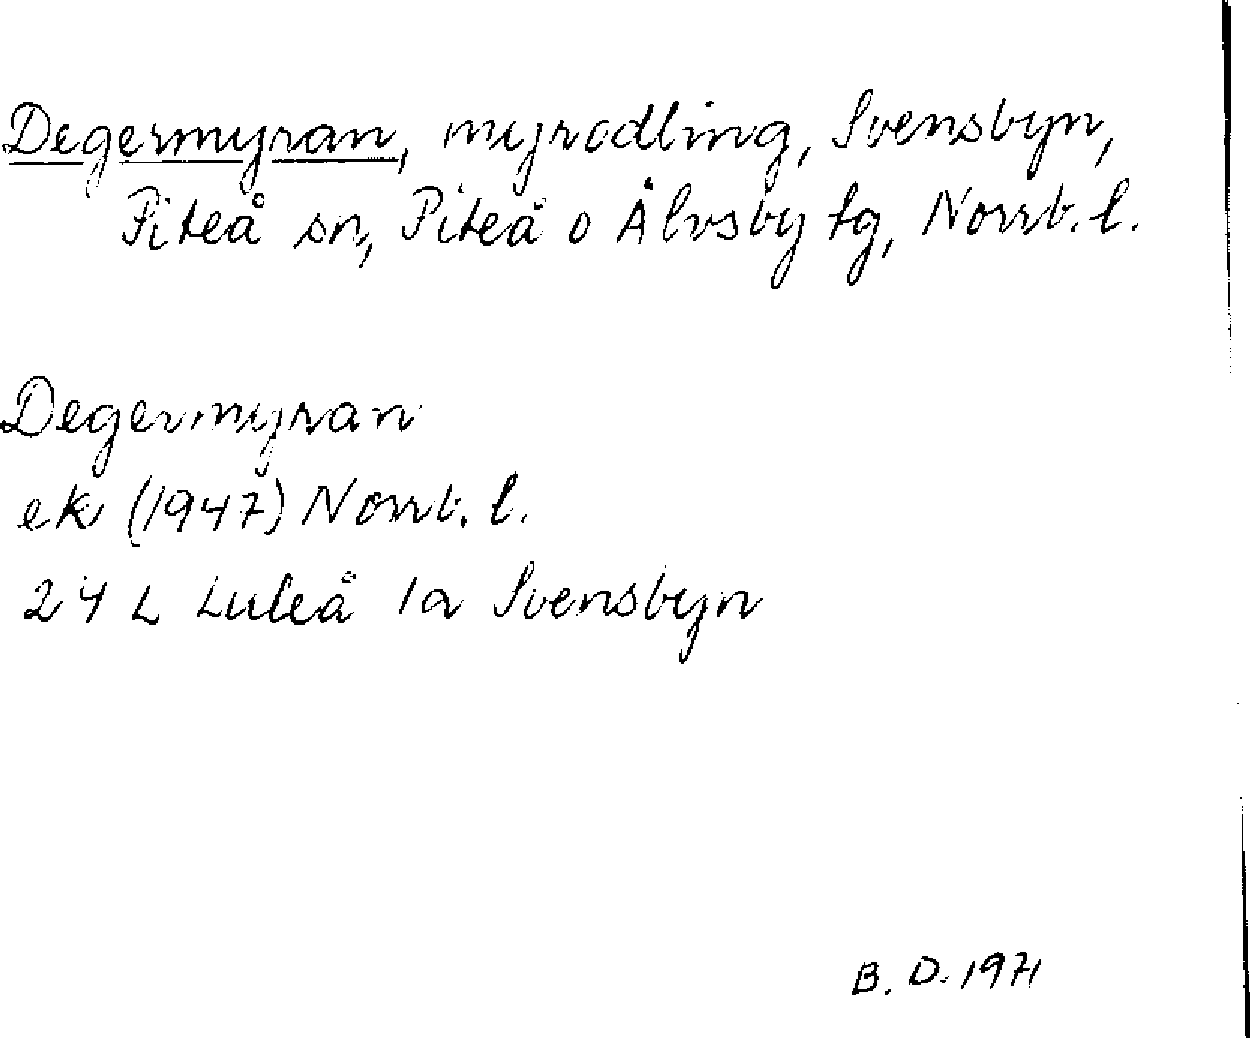 Degermyran, myrodling, Svensbyn,
Piteå sn, Piteå o Älvsby tg, Norrb. l.
Degermyran
ek (1947) Norrb. l.
24 L Luleå 1a Svensbyn
B. D. 1971